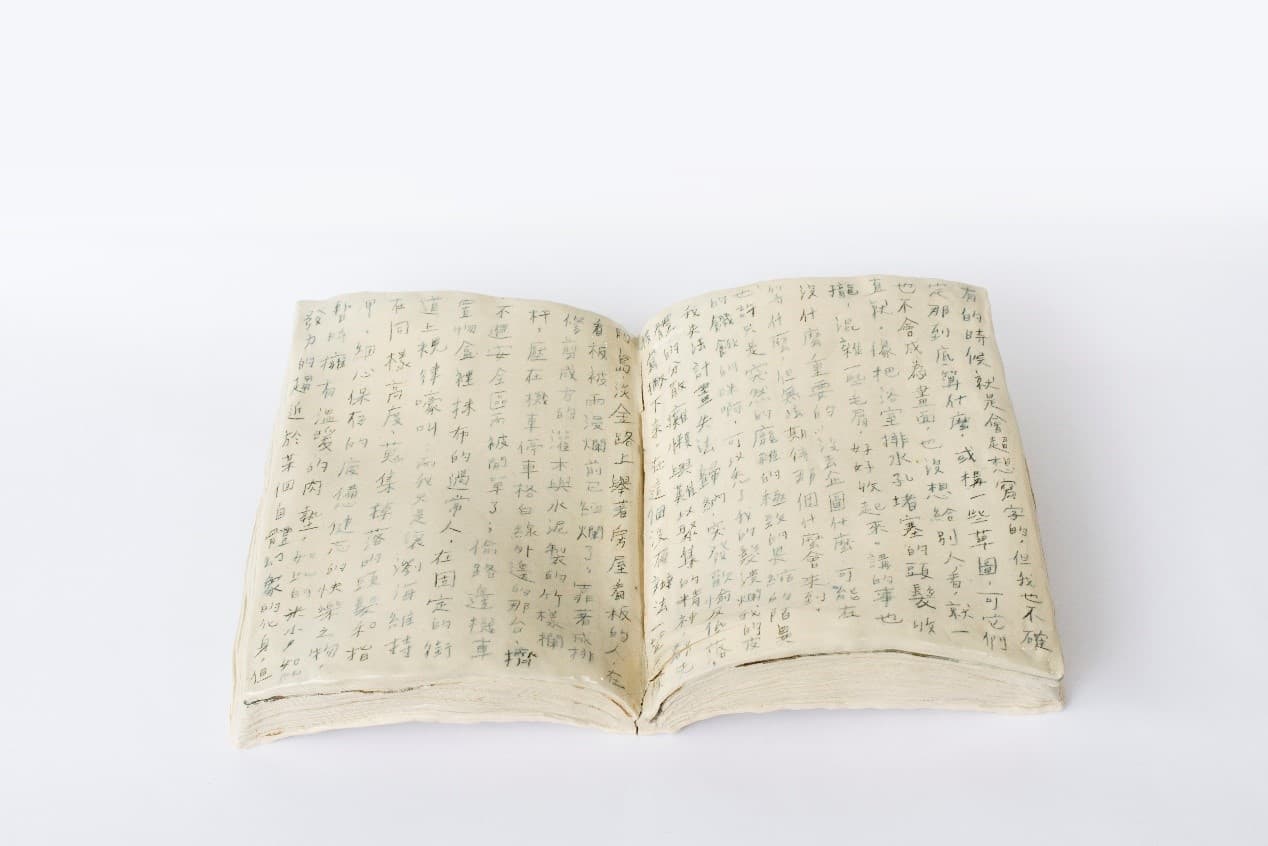 有的時候，就是會超想寫字的，但我也不確
定那到底算什麼，或構一些草圖，可它們
也不會成為畫面，也沒想給別人看，就一
直就，像把浴室排水孔堵塞的頭髮收
攏，混雜一些毛屑，好好收起來。講的事也
沒什麼重要的，沒去企圖什麼，可能在
等什麼，但無法期待那個什麼會來到，
也許只是突然的龐雜的極致的果
的饑餓的咪啊，可以為了我的髮潰爛我的皮
我失法計畫失法歸納突發歡愉及低落，
的分散癱懶與難以聚集的精神，
寫撇下來，在這個沒有辦法一
島淡金路上舉著房屋看板的人，在
看板被雨浸爛前已經爛了；菲著成排
修剪成方的灌木與水泥製的竹樣欄
杆，壓在機車停車格白線外邊的那台，擠
不進安全區而被開單了；偷路邊機車
置物盒裡抹布的過常人，在固定的街
道上規律嚎叫；而我只是淚洲海維持
在同樣高度，蒐集掉落的頭髮和指
甲，細心保存的疲憊健忘的快樂之物，
暫時擁有溫暖的肉墊，如上的米小夕如
發力的趨近於某個自體幻象的化身，但